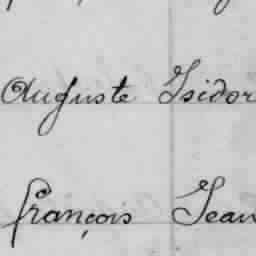 Auguste Isidor
François Jean